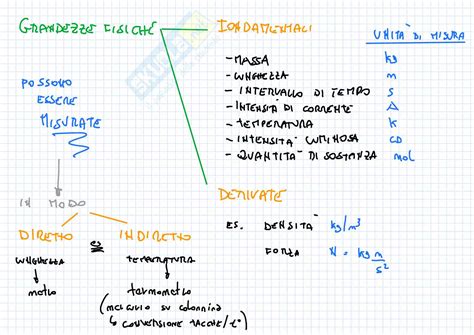 GRANDEZZE FISICHE
FONDAMENTALI
UNITÀ DI MISURA
- MASSA kg
- LUNGHEZZA m
- INTERVALLO DI TEMPO s
- INTENSITÀ DI CORRENTE A
- TEMPERATURA K
- INTENSITÀ LUMINOSA CD
- QUANTITÀ DI SOSTANZA mol
POSSONO
ESSERE
MISURATE
IN MODO
DIRETTO
es
INDIRETTO
LUNGHEZZA
metro
TEMPERATURA
termometro
(MERCURIO SU COLONNINA
↳ CONVERSIONE TACCHE/t°)
DERIVATE
ES. DENSITÀ kg/m³
FORZA N = kg m/s²